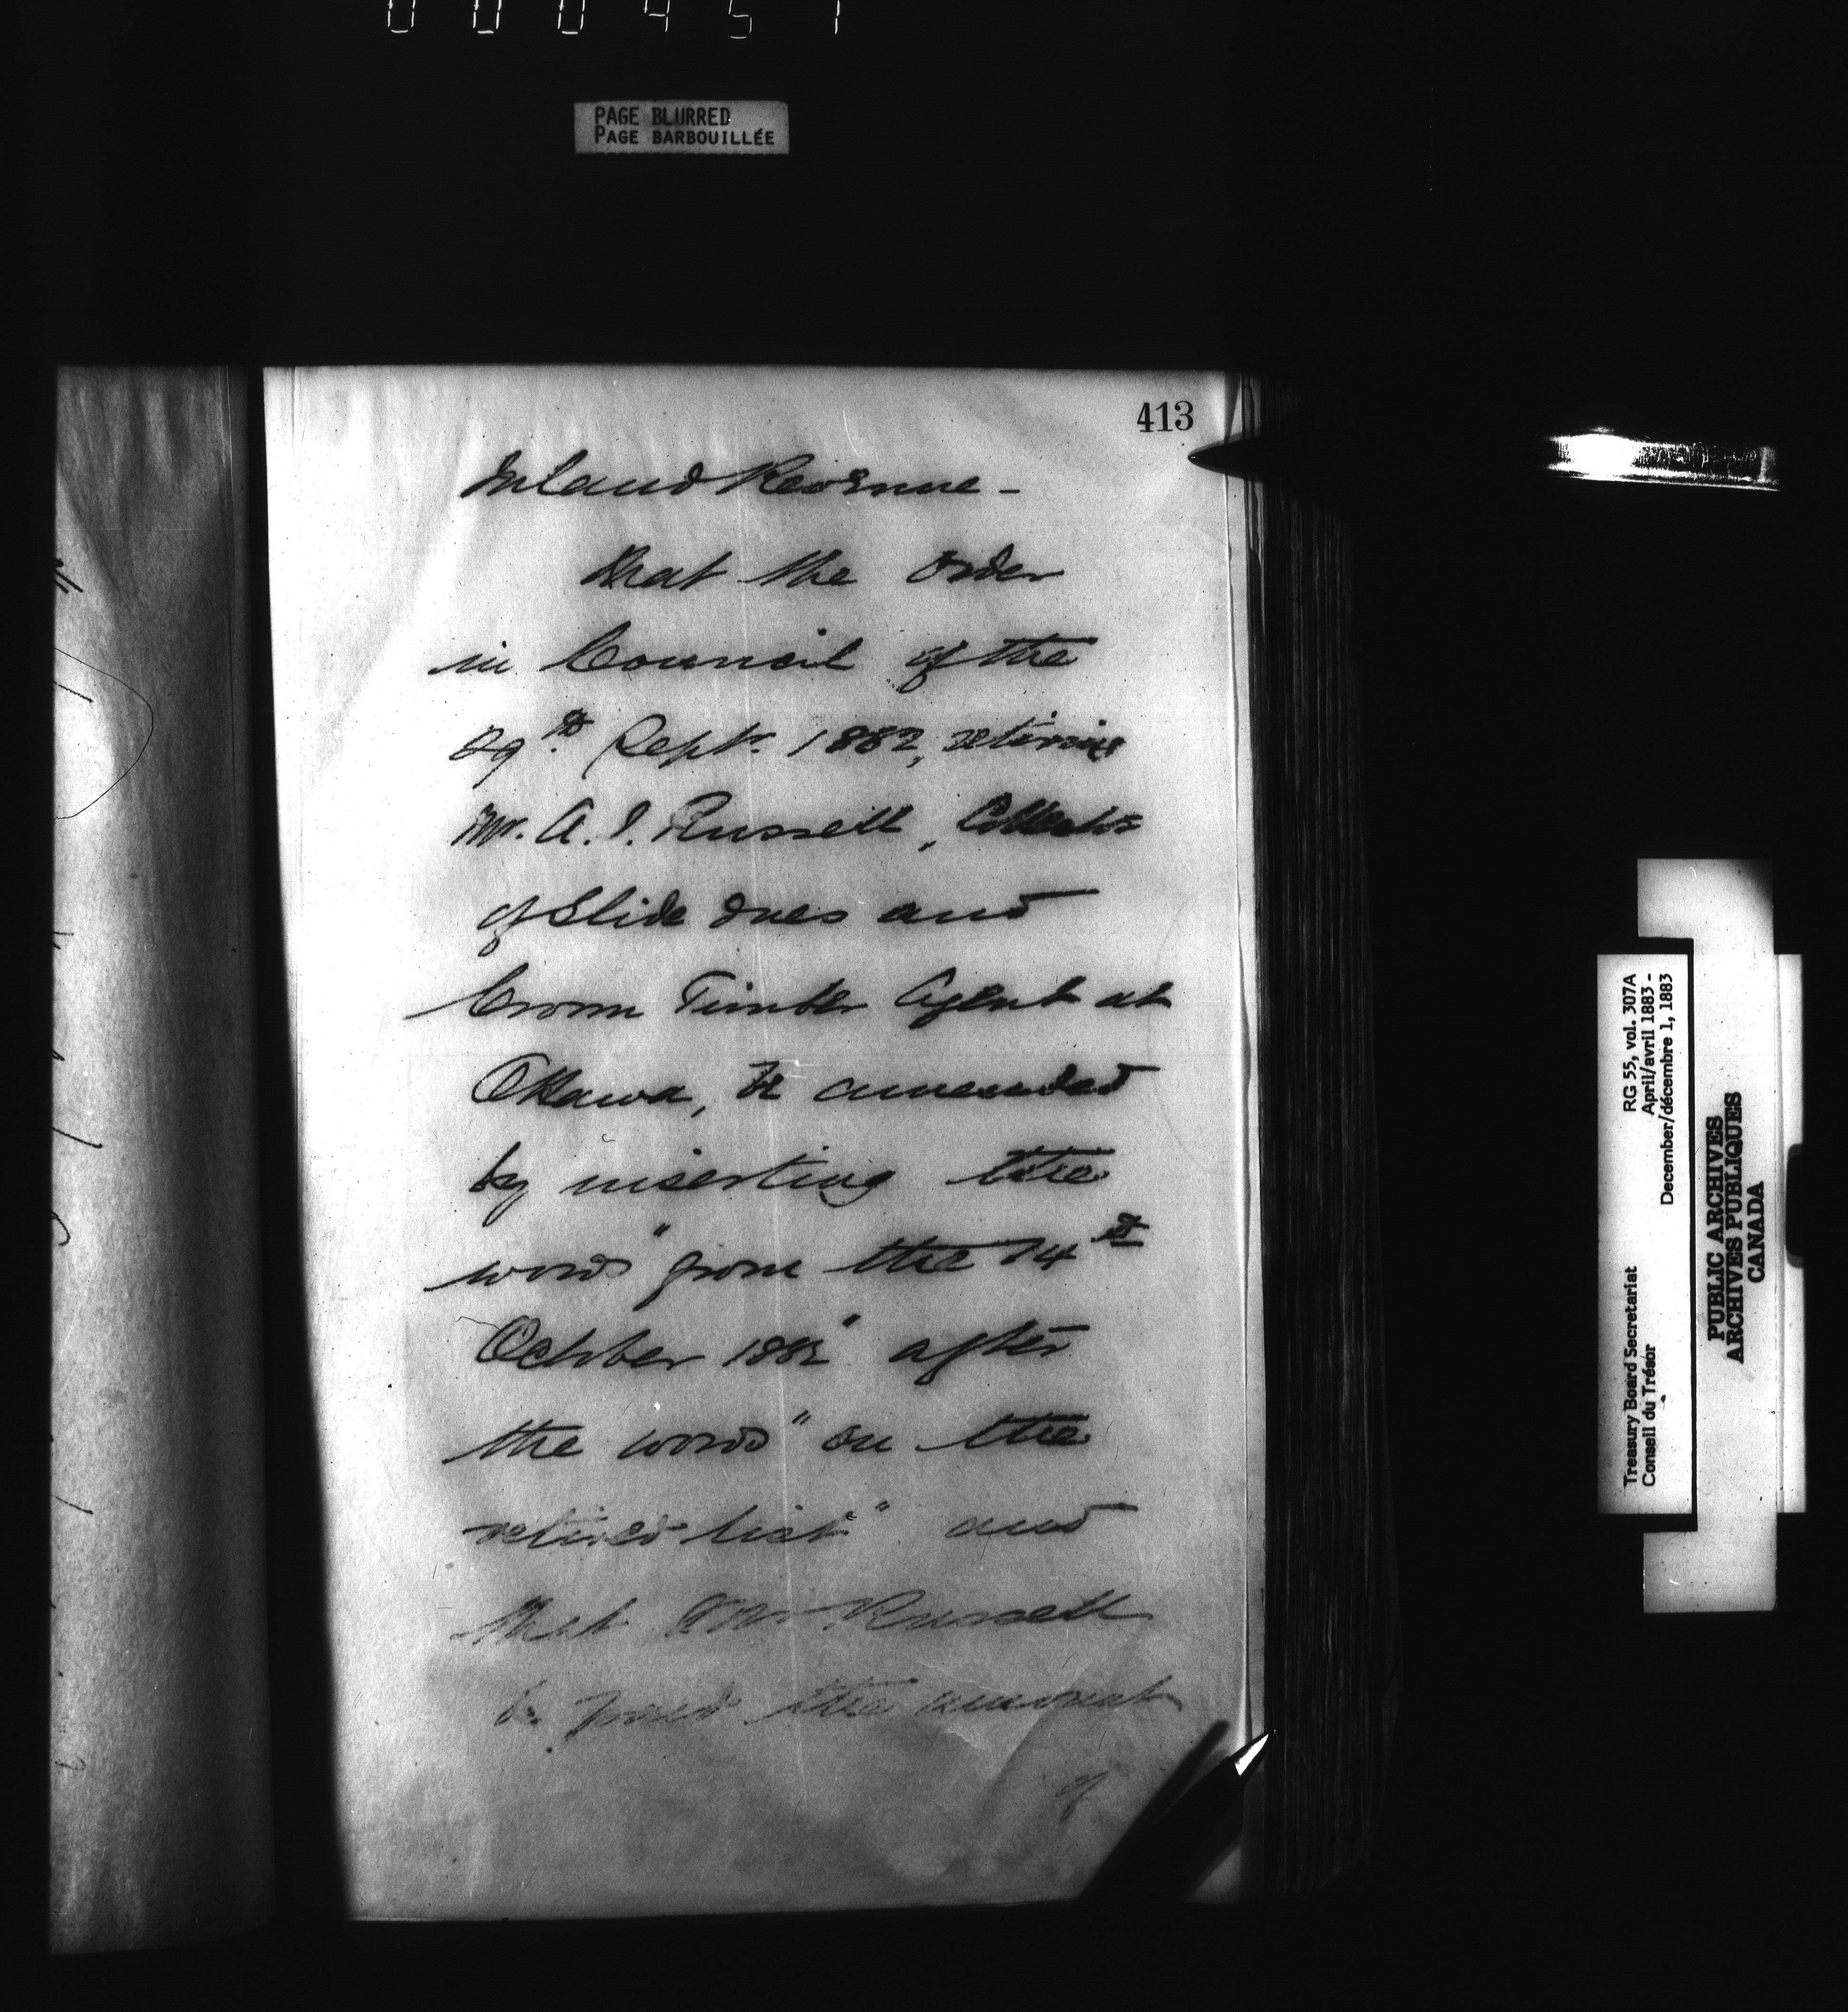 000451
PAGE BLURRED
PAGE BARBOUILLÉE
413
Inland Revenue -
that the Order
in Council of the
29th Sept. 1882, retiring
Mr. A. J. Russell, Collector
of Slide dues and
Crown Timber Agent at
Ottawa, be amended
by inserting the
words "from the 14th
October 1882" after
the words "on the
retired list" and
that Mr Russell
be paid the amount
of
Treasury Board Secretariat
Conseil du Trésor
RG 55, vol. 307A
April/avril 1883 -
December/décembre 1, 1883
PUBLIC ARCHIVES
ARCHIVES PUBLIQUES
CANADA